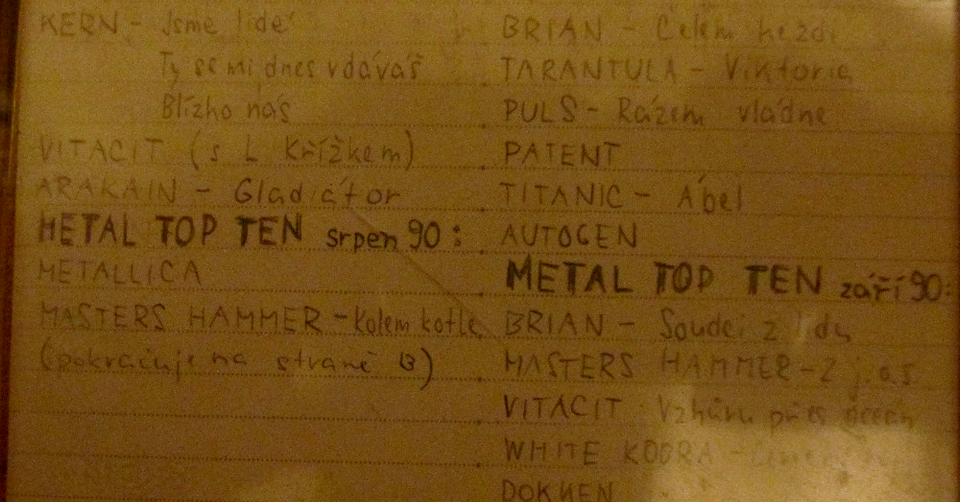 KERN - Jsme lidé
Ty se mi dnes vdáváš
Blízko nás
VITACIT (s L Křížkem)
ARAKAIN - Gladiátor
METAL TOP TEN srpen 90:
METALLICA
MASTERS HAMMER - Kolem kotle
(pokračuje na straně B)
BRIAN - Čelem ke zdi
TARANTULA - Viktoria
PULS - Rázem vládne
PATENT
TITANIC - Ábel
AUTOGEN
METAL TOP TEN září 90:
BRIAN - Soudci z lidu
MASTERS HAMMER - Z j.a.s.
VITACIT Vzhůru přes oceán
WHITE KOBRA -
DOKKEN